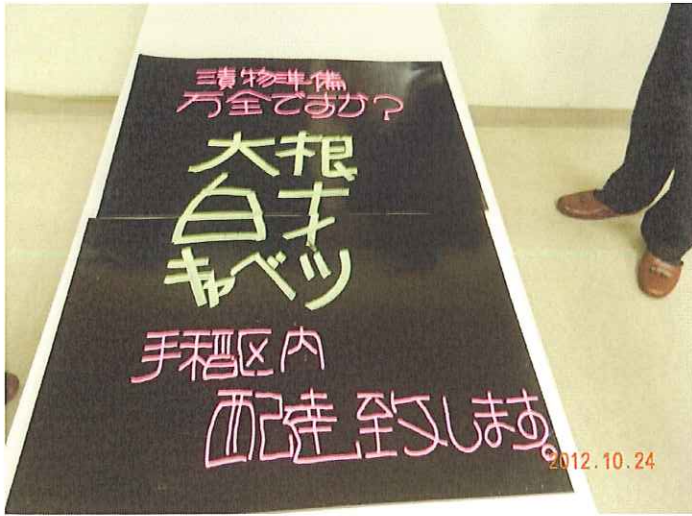 漬物準備
万全ですか?
大根
白才
キャベツ
手稲区内
配達致します。
2012.10.24